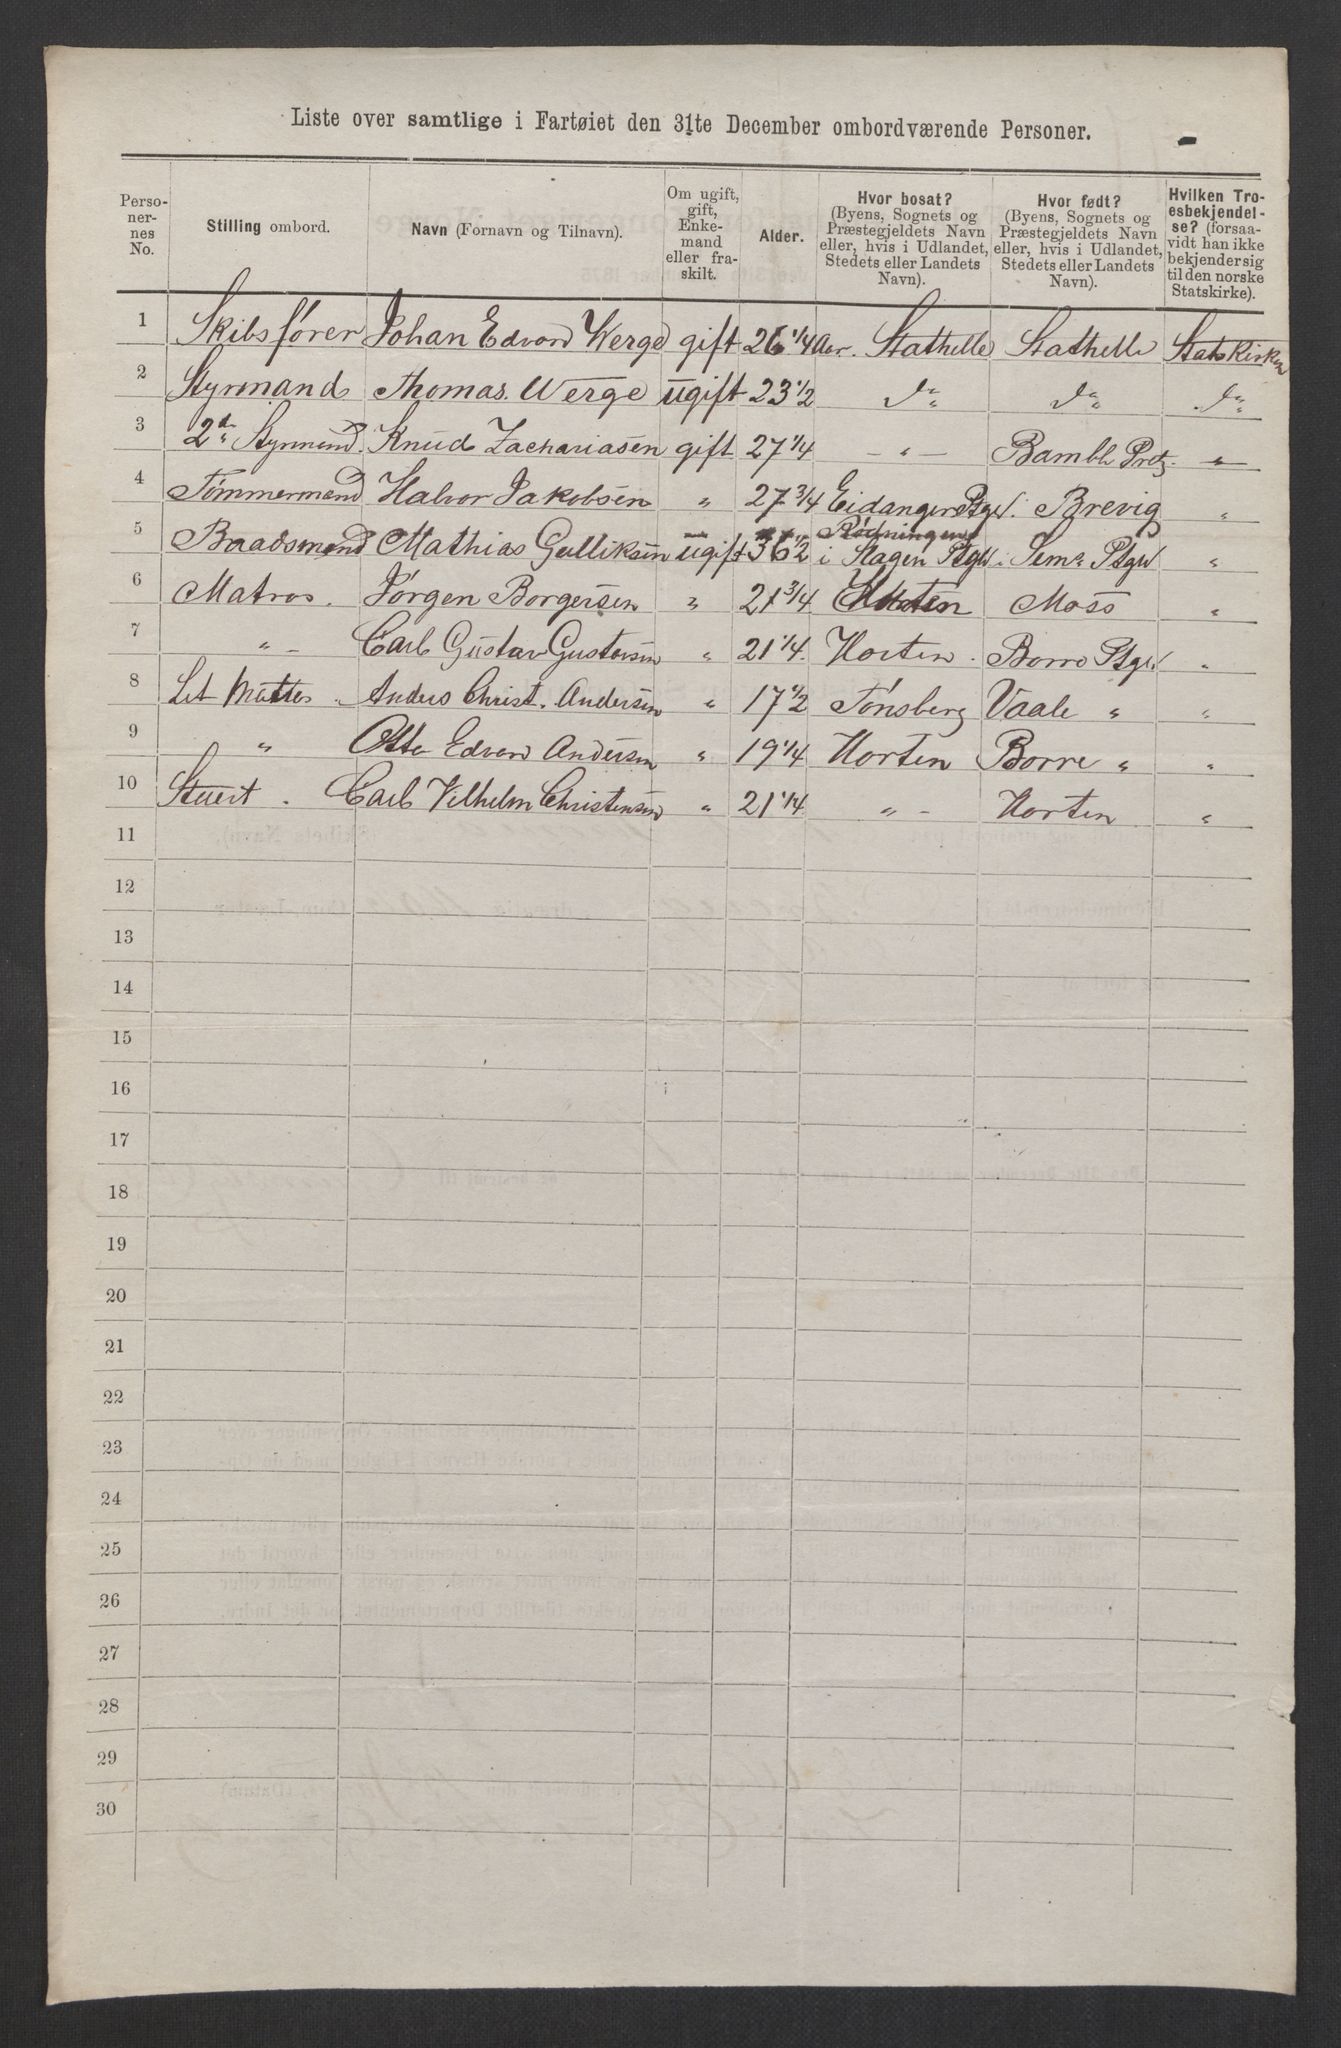 Liste over samtlige i Fartøiet den 31te December ombordværende Personer.
Perso-nernes No. | Stilling ombord. | Navn (Fornavn og Tilnavn). | Om ugift, gift, Enkemand eller fraskilt. | Alder. | Hvor bosat? (Byens, Sognets og Præstegjeldets Navn eller, hvis i Udlandet, Stedets eller Landets Navn). | Hvor født? (Byens, Sognets og Præstegjeldets Navn eller, hvis i Udlandet, Stedets eller Landets Navn). | Hvilken Troesbekjendelse? (forsaavidt han ikke bekjender sig til den norske Statskirke).
1 Skibsfører Johan Edvard Werge gift 26 1/4 Aar. Stathelle Stathelle Statskirken
2 Styrmand Thomas. Werge ugift 23 1/2 Do Do Do
3 2den Styrmand. Knud Zachariasen gift 27 1/4 — " — Bamble Prstg. "
4 Tømmermand Halvor Jakobsen " 27 3/4 Eidanger Pstgd. Brevig "
5 Baadsmand Mathias Gulliksen ugift 36 1/2 Rødningen i Slagen Pstgd. Sems Ptgld "
6 Matros. Jørgen Borgersen " 21 3/4 Horten Moss "
7 " – Carl Gustav Gustavsen " 21 1/4. Horten. Borre Ptgld "
8 Let Matros. Anders Christ. Andersen " 17 1/2 Tønsberg Vaale " "
9 " Otto Edvard Andersen " 19 1/4 Horten Borre " "
10 Stuert. Carl Vilhelm Christensen " 21 1/4 " – Horten "
11
12
13
14
15
16
17
18
19
20
21
22
23
24
25
26
27
28
29
30